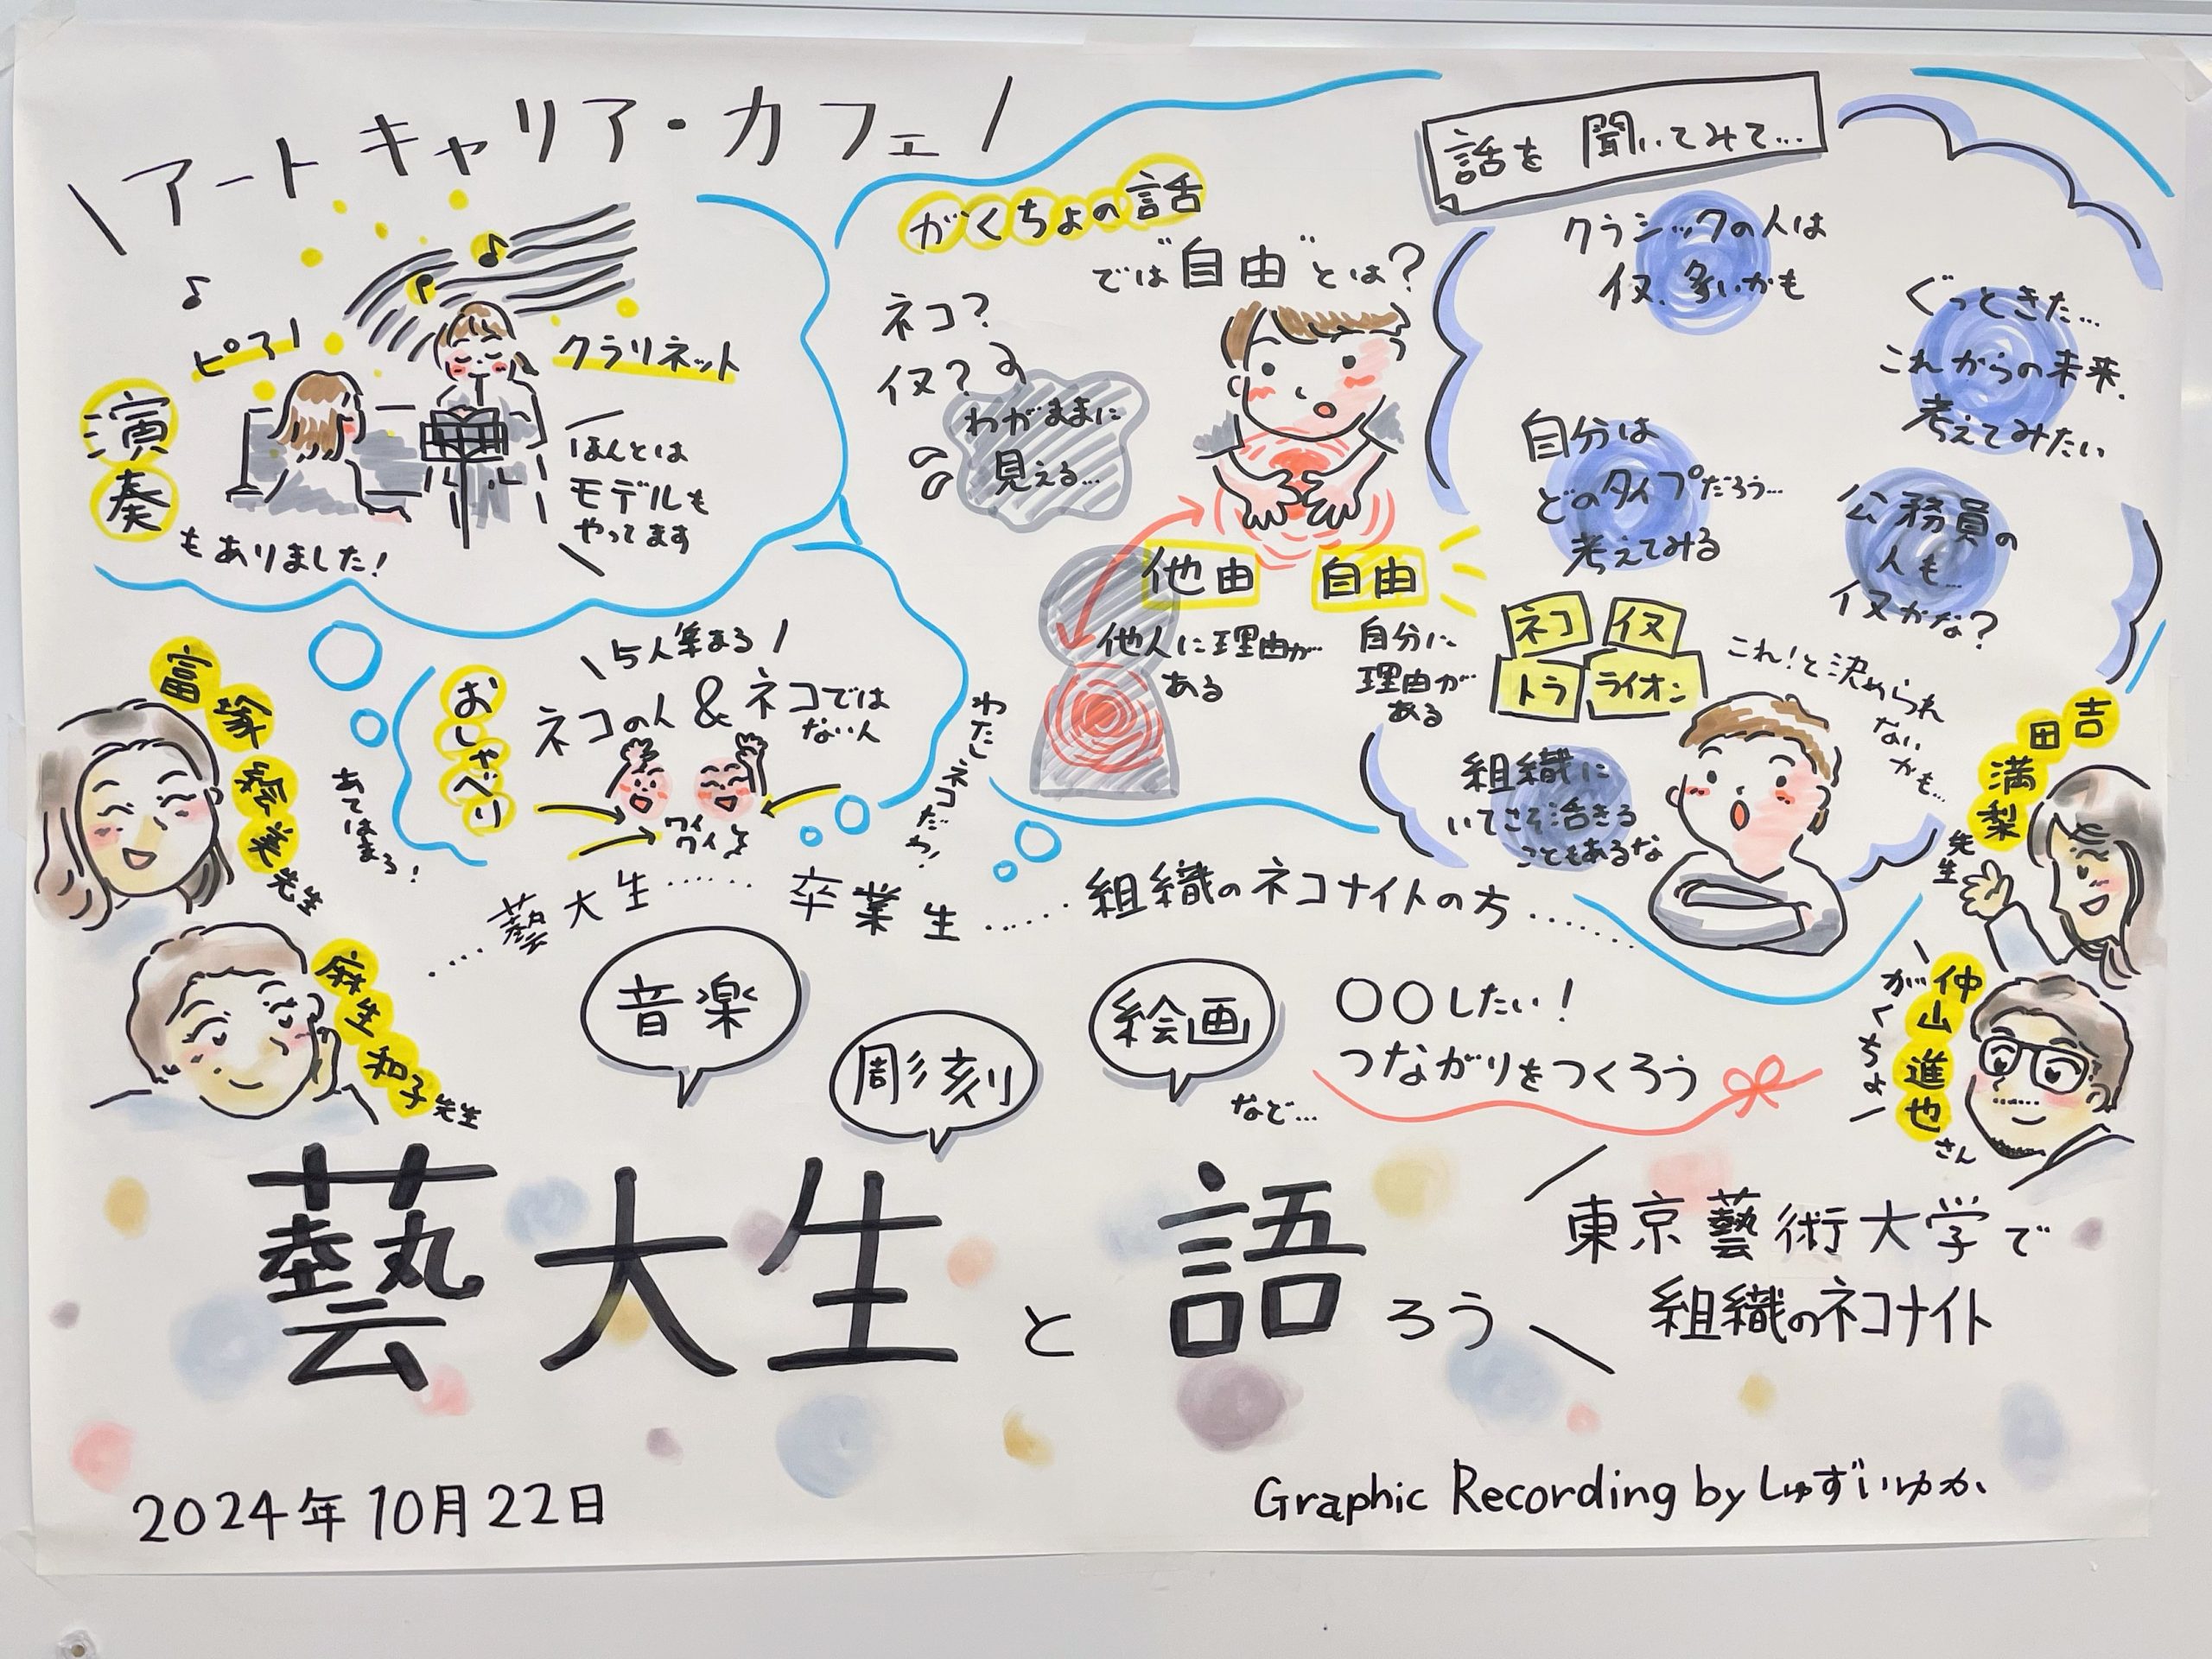 アートキャリア・カフェ
ピアノ
クラリネット
演奏
もありました!
ほんとは
モデルも
やってます
がくちょの話
では"自由"とは?
ネコ?
イヌ?
わがままに
見える…
他由
自由
他人に理由が
ある
自分に
理由が
ある
話を聞いてみて…
クラシックの人は
イヌ、多いかも
ぐっときた…
これからの未来、
考えてみたい
自分は
どのタイプだろう…
考えてみる
公務員の
人も…
イヌかな?
ネコ
イヌ
トラ
ライオン
これ!と決められ
ない
かも…
組織に
いてこそ活きる
こともあるな
5人集まる
おしゃべり
ネコの人&ネコでは
ない人
ワイ
ワイと
あてはまる!
わたしネコだわ!
富塚絵美先生
麻生和子先生
吉田満梨先生
がくちょー
仲山進也さん
…藝大生……卒業生……組織のネコナイトの方……
音楽
彫刻
絵画
など…
〇〇したい!
つながりをつくろう
藝大生と語ろう
東京藝術大学で
組織のネコナイト
2024年10月22日
Graphic Recording by しゅずいゆか